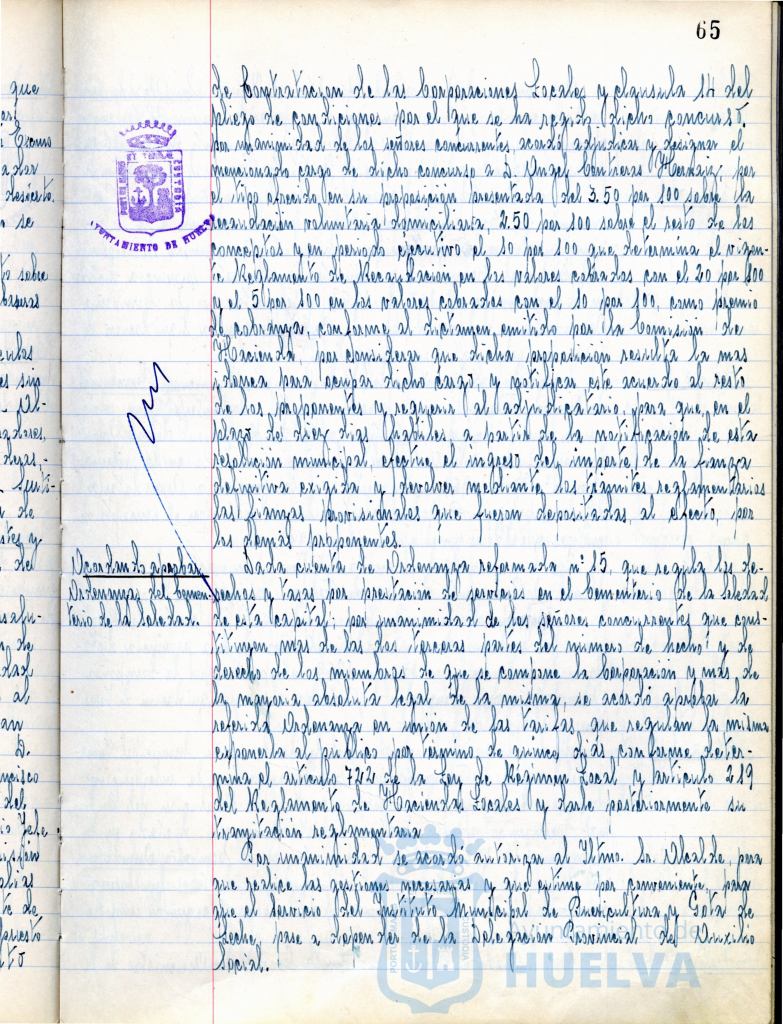 65
de Contratación de las Corporaciones Locales y cláusula 14 del
pliego de condiciones por el que se ha regido dicho concurso.
por unanimidad de los señores concurrentes, acordó adjudicar y designar el
mencionado cargo de dicho concurso a D. Angel Contreras por
el tipo ofrecido en su proposición presentada del 3.50 por 100 sobre la
recaudación voluntaria domiciliaria, 2.50 por 100 sobre el resto de los
conceptos y en periodo ejecutivo el 10 por 100 que determina el vigen-
te Reglamento de Recaudación en los valores cobrados con el 20 por 100
y el 5 por 100 en los valores cobrados con el 10 por 100, como premio
de cobranza, conforme al dictamen emitido por la Comisión de
Hacienda, por considerar que dicha proposición resulta la mas
idonea para ocupar dicho cargo, y notificar este acuerdo al resto
de los proponentes y requerir al adjudicatario, para que, en el
plazo de diez dias hábiles, a partir de la notificación de esta
resolución municipal, efectue el ingreso del importe de la fianza
definitiva exigida y devolver mediante los trámites reglamentarios
las fianzas provisionales que fueron depositadas, al efecto, por
los demás proponentes.
Acordando aprobar
Ordenanzas del Cemen-
terio de la Soledad.
Dada cuenta de Ordenanza reformada nº 15, que regula los de-
rechos y tasas por prestación de servicios en el Cementerio de la Soledad
de esta Capital; por unanimidad de los señores concurrentes que cons-
tituyen mas de las dos terceras partes del número de hecho y de
derecho de los miembros de que se compone la Corporación y mas de
la mayoria absoluta legal de la misma, se acordó aprobar la
referida Ordenanza en unión de las tarifas que regulan la misma
exponerla al público por término de quince dias conforme deter-
mina el artículo 722 de la Ley de Régimen Local y artículo 219
del Reglamento de Haciendas Locales y darle posteriormente su
tramitación reglamentaria
Por unanimidad se acordó autorizar al Iltmo. Sr. Alcalde, para
que realice las gestiones necesarias y que estime por conveniente, para
que el servicio del Instituto Municipal de Puericultura y Gota de
Leche, pase a depender de la Delegación Provincial de Auxilio
Social.
AYUNTAMIENTO DE HUELVA
ayuntamiento de
HUELVA